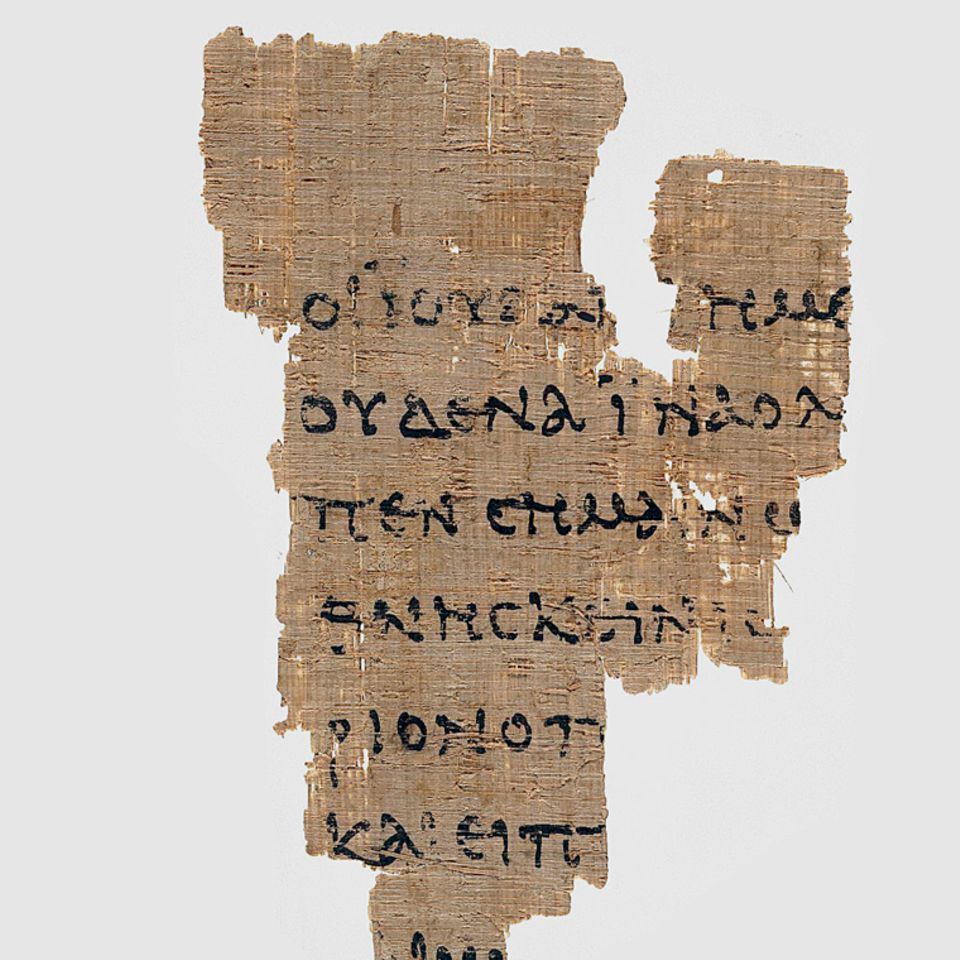 ΟΙ ΪΟΥΔΑΙ ΗΜΙ
ΟΥΔΕΝΑ ΪΝΑ Ο Λ
ΠΕΝ CΗΜΑΙΝω
ΘΝΗCΚΕΙΝ ΙC
ΡΙΟΝ Ο Π
ΚΑΙ ΕΙΠ